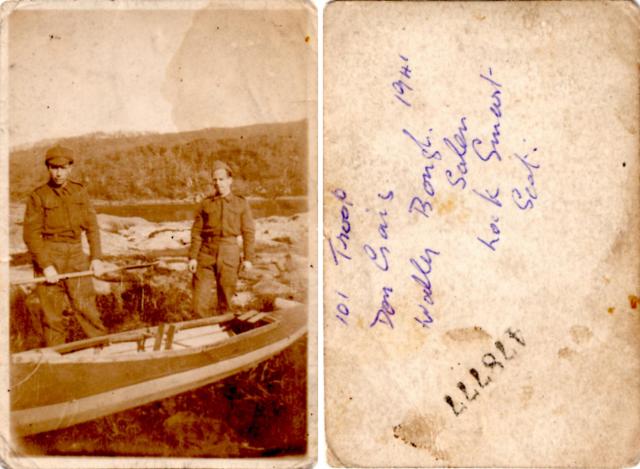 101 Troop
Don Craig
Wally Bough. 1941
Salen
Loch Sunart
Scot.
222824